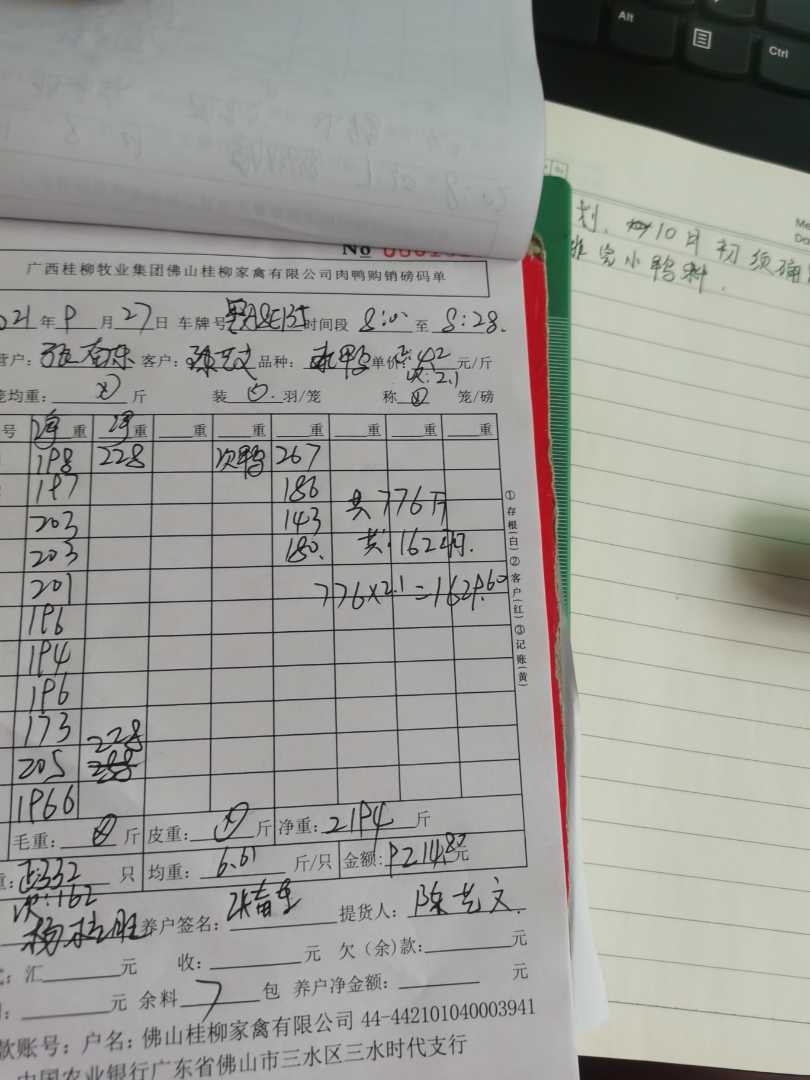 Alt
Ctrl
划、10月初须确
小鸭料.
No
广西桂柳牧业集团佛山桂柳家禽有限公司肉鸭购销磅码单
021年9月27日 车牌号 时间段 8:00 至 8:28.
营户: 客户: 陈艺文 品种: 单价: 正:4.2 元/斤
次:2.1
笼均重: 斤 装 羽/笼 称 笼/磅
号 净重 净重 重 重 重 重 重 重
198 228 次鸭 267
197 186 共776斤
203 143 共:1629
203 180.
201 776×2.1=1629.60
196
194
196
173 228
205
1966
毛重: 斤 皮重: 斤 净重: 2194 斤
重: 正:332 只 均重: 6.61 斤/只 金额: 9214.8元
次:162
杨桂胜 养户签名: 提货人: 陈艺文.
式: 汇 元 收: 元 欠(余)款: 元
元 余料 7 包 养户净金额: 元
款账号: 户名: 佛山桂柳家禽有限公司 44-442101040003941
中国农业银行广东省佛山市三水区三水时代支行
①存根(白)②客户(红)③记账(黄)